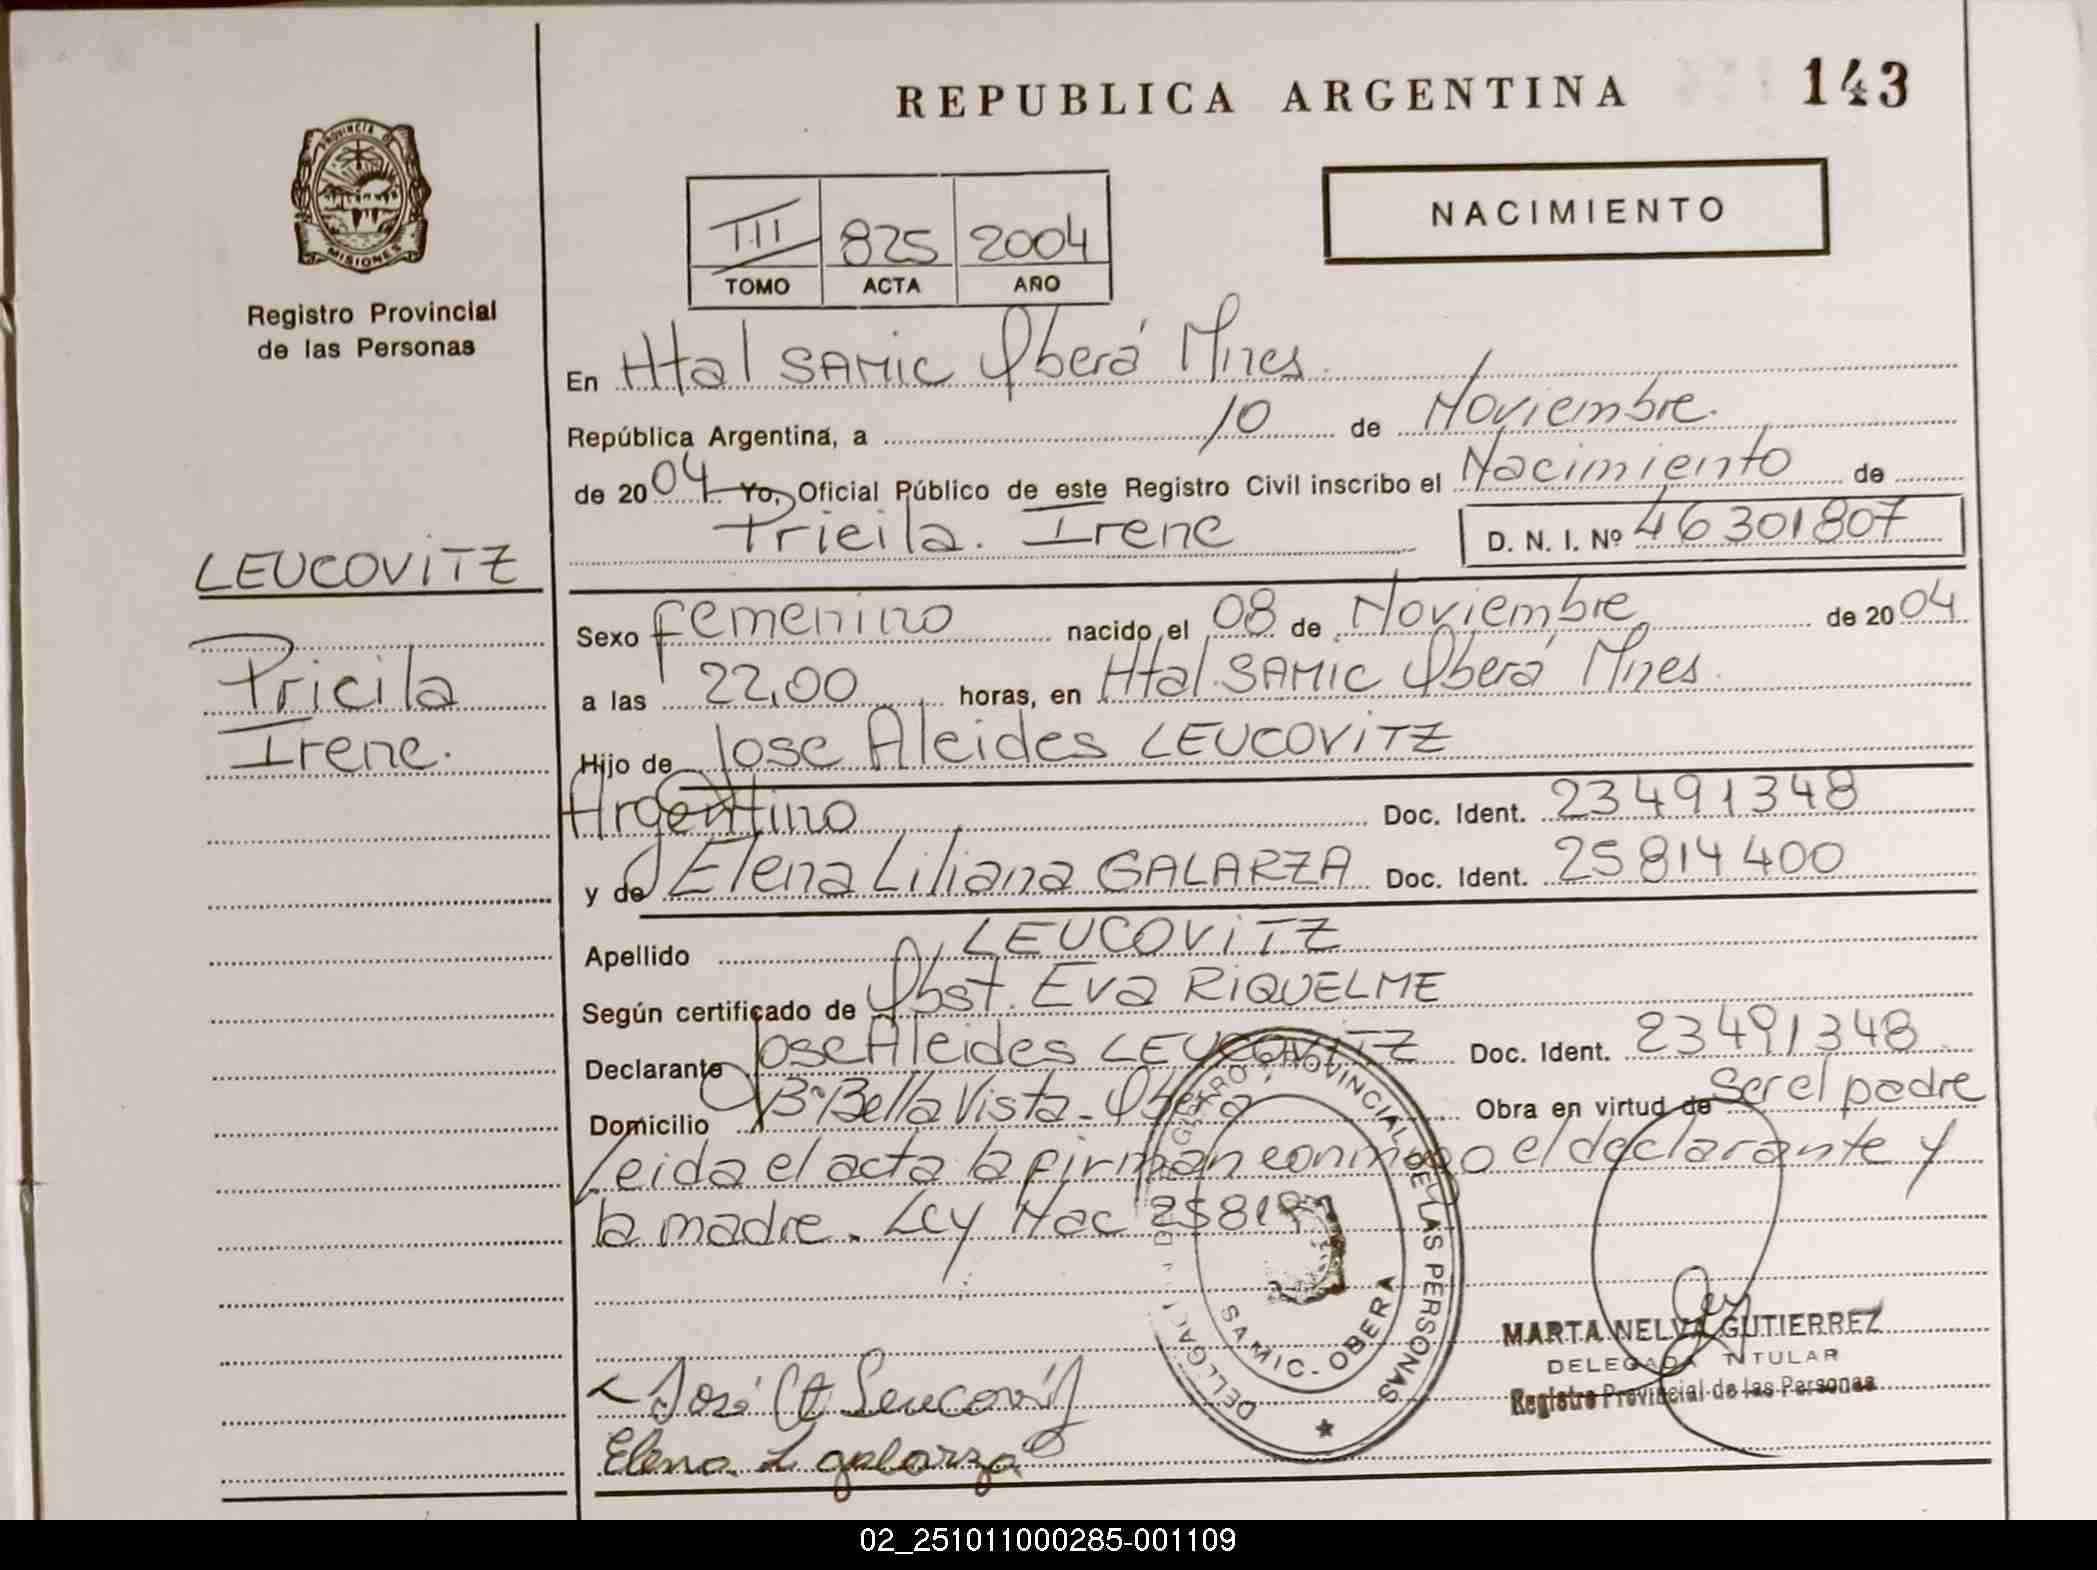 REPUBLICA ARGENTINA
143
PROVINCIA DE
MISIONES
Registro Provincial
de las Personas
III 825 2004
TOMO ACTA AÑO
NACIMIENTO
En Htal SAMIC Oberá Mnes
República Argentina, a 10 de Noviembre
de 2004 Yo, Oficial Público de este Registro Civil inscribo el Nacimiento de
Pricila. Irene D. N. I. Nº 46301807
LEUCOVITZ
Pricila
Irene.
Sexo femenino nacido el 08 de Noviembre de 2004
a las 22,00 horas, en Htal SAMIC Oberá Mnes
Hijo de Jose Alcides LEUCOVITZ
Argentino Doc. Ident. 23491348
y de Elena Liliana GALARZA Doc. Ident. 25814400
Apellido LEUCOVITZ
Según certificado de Obst. Eva RIQUELME
Declarante Jose Alcides LEUCOVITZ Doc. Ident. 23491348
Domicilio Bº Bella Vista - Oberá Obra en virtud de ser el padre
Leida el acta la firman conmigo el declarante y
la madre. Ley Nac 25819
REGISTRO PROVINCIAL DE LAS PERSONAS
SAMIC - OBERA
MARTA NELVA GUTIERREZ
DELEGADA TITULAR
Registro Provincial de las Personas
José A Leucovitz
Elena L galarza
02_251011000285-001109